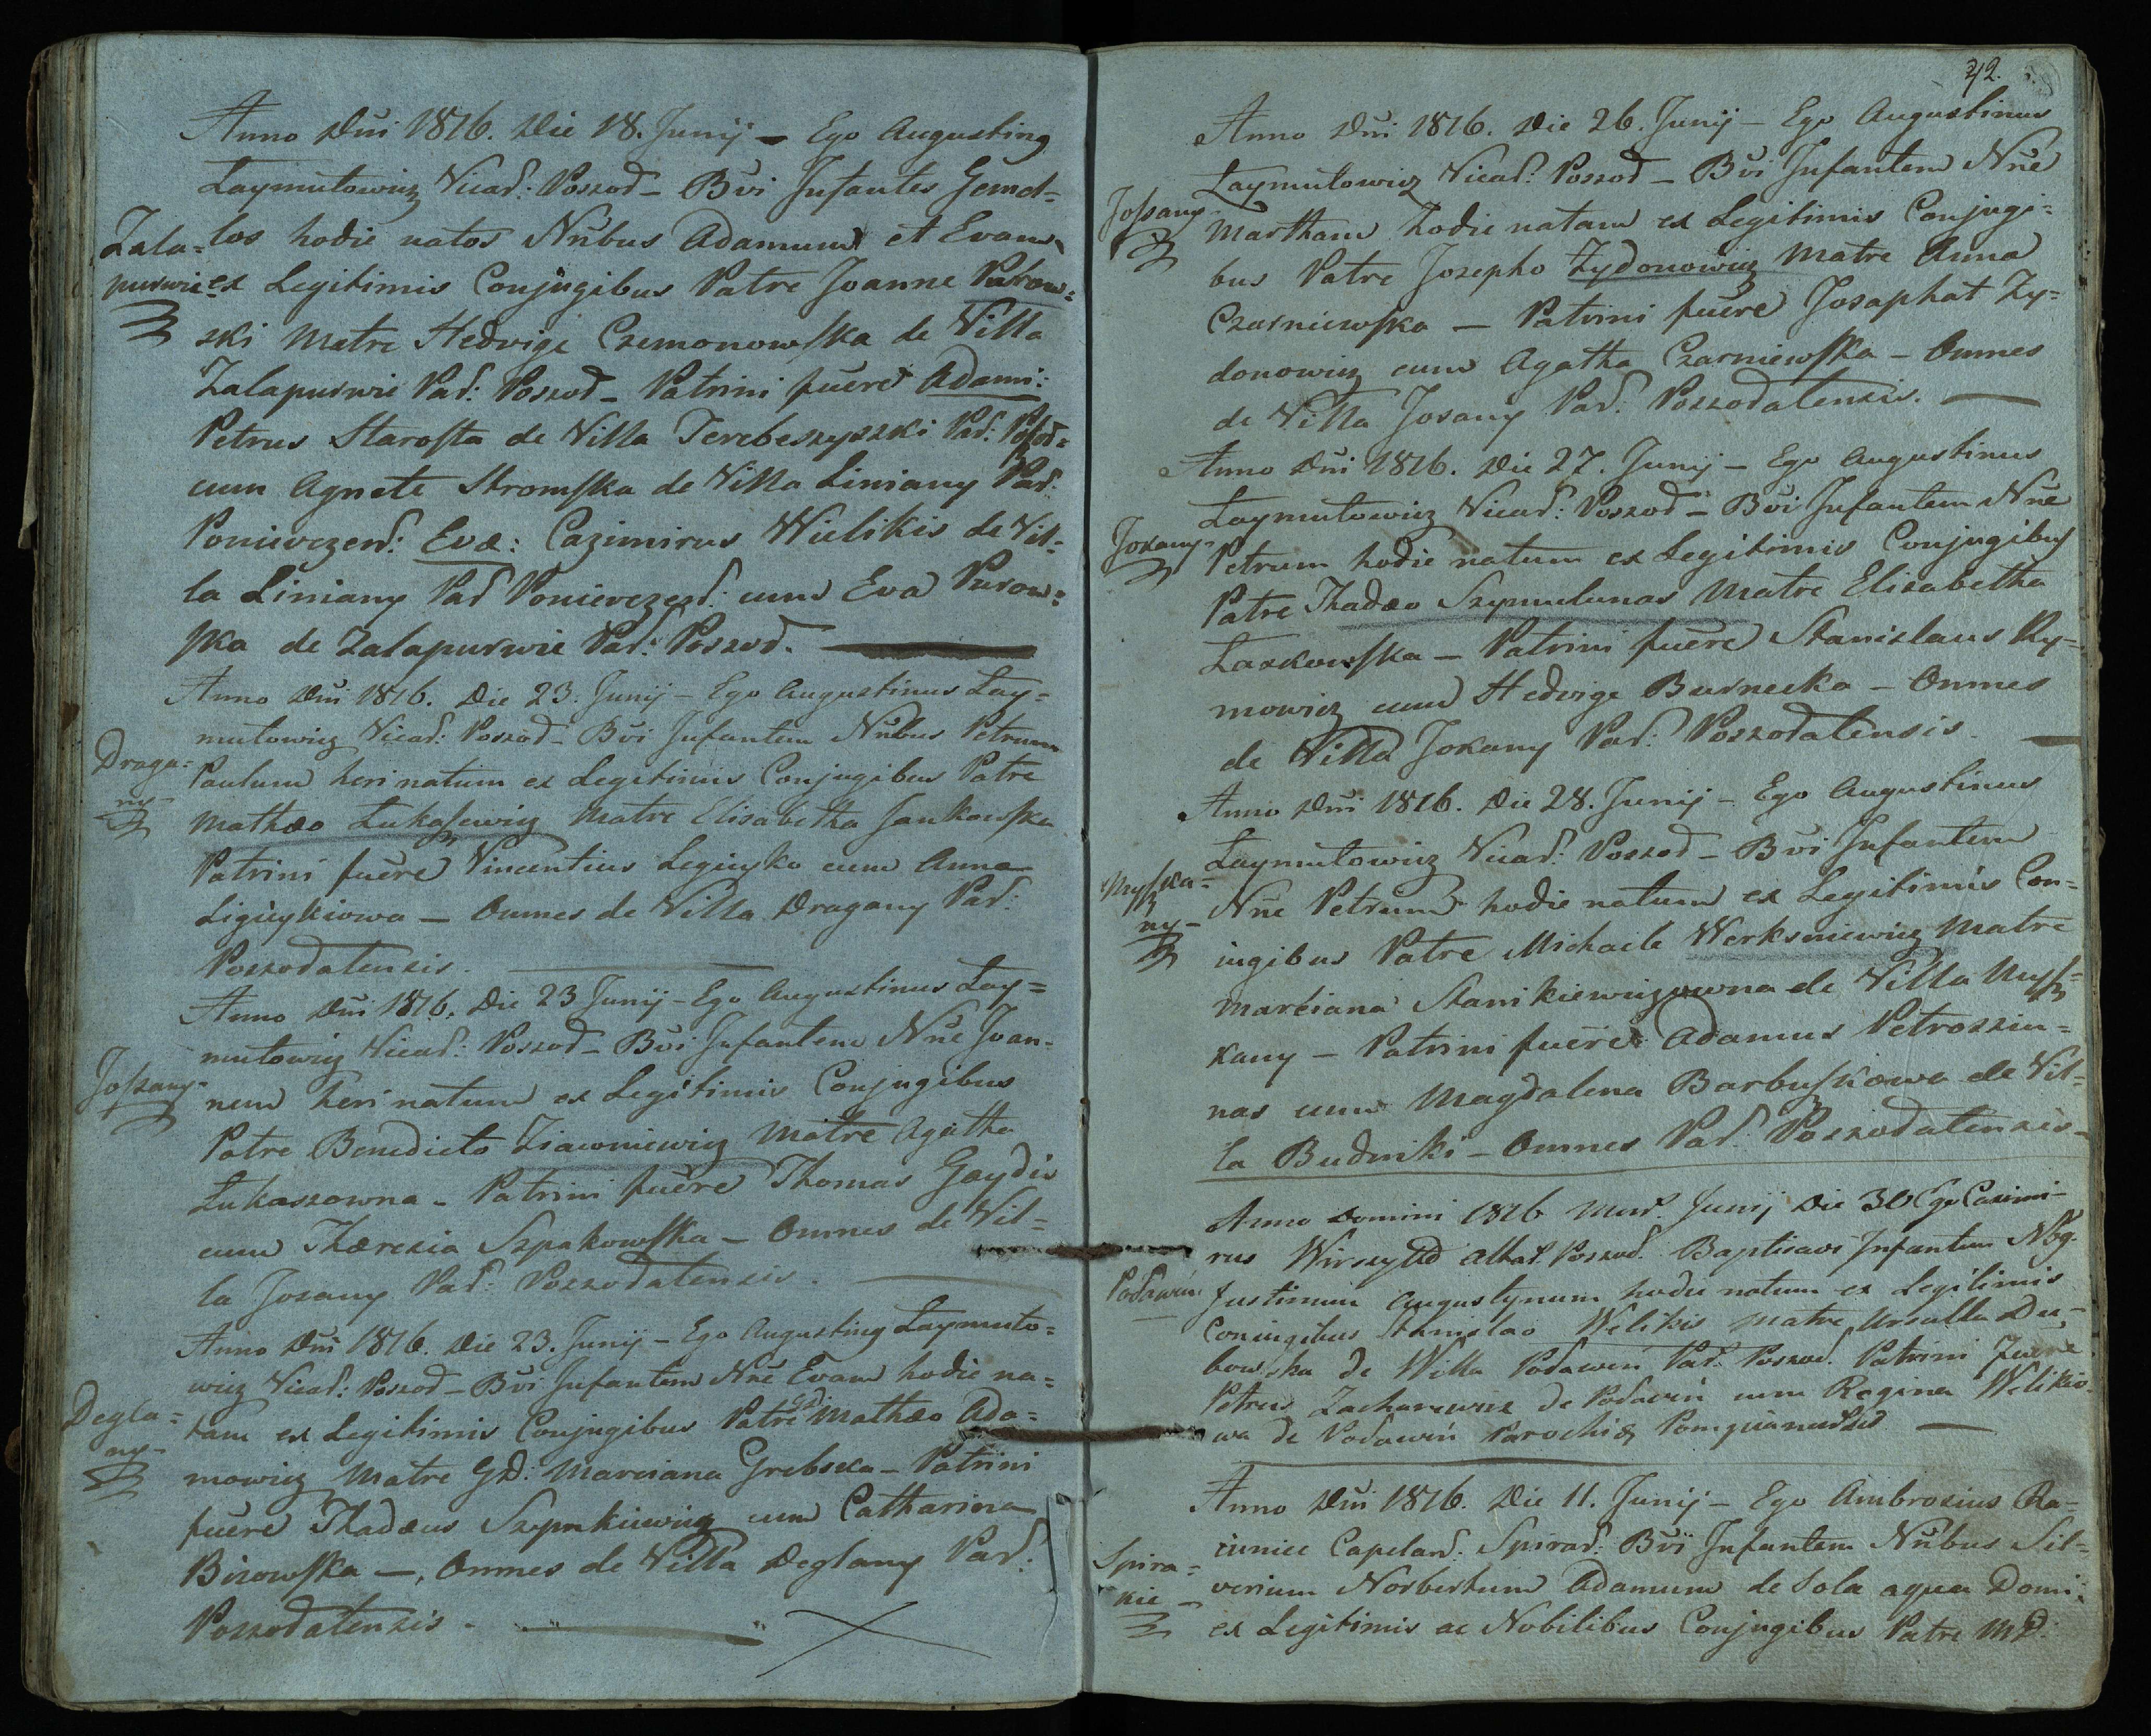 Anno Dni 1816. Die 18. Junij – Ego Augusting
Laymutowicz Vicad: Poszod – Bvi Infantes Gemel=
Zala=
los hodie natos Nnbus Adamum et Evam
purwie
ex Legitimis Conjugibus Patre Joanne Purow=
ski Matre Hedvige Czemonowska de Villa
Zalapurwie Pad: Poszod – Patrini fuere Adami:
Petrus Starosta de Villa Terebeszyszki Pad: Poszod=
cum Agnete Stromska de Villa Liniany Pad:
Ponievezend: Evæ: Cazimirus Wielikis de Vil=
la Liniany Pad Ponievezend: cum Eva Purow=
ska de Zalapurwie Pad: Poszod.
Anno Dni 1816. Die 23. Junij – Ego Augustinus Lay=
mutowicz Vicad: Poszod – Bvi Infantem Nnbus Petrum
Draga=
ny
Paulum heri natum ex Legitimis Conjugibus Patre
Mathæo Łukaszewicz Matre Elisabetha Jankowska
Patrini fuere Vincentius Legieyko cum Anna
Ligieykiowa – Omnes de Villa Dragany Pad:
Poszodatensis.
Anno Dni 1816. Die 23 Junij – Ego Augustinus Lay=
mutowicz Vicad: Poszod – Bvi Infantem Nne Joan=
Joszany
nem heri natum ex Legitimis Conjugibus
Patre Benedicto Ziawniewicz Matre Agatha
Łukaszowna – Patrini fuere Thomas Gaydis
cum Thæresia Szpakowska – Omnes de Vil=
la Joszany Pad: Poszodatensis.
Anno Dni 1816. Die 23. Junij – Ego Augusting Laymuto=
wicz Vicad: Poszod – Bvi Infantem Nne Evam hodie na=
Degla=
ny
tam ex Legitimis Conjugibus Patre Gd: Mathæo Ada=
mowicz Matre Gd: Marciana Grebska – Patrini
fuere Thadæus Szymkiewicz cum Catharina
Birowska –, Omnes de Villa Deglany Pad:
Poszodatensis.
42.
Anno Dni 1816. Die 26. Junij – Ego Augustinus
Laymutowicz Vicad: Poszod – Bvi Infantem Nne
Joszany
Martham hodie natam ex Legitimis Conjugi=
bus Patre Josepho Zydonowicz Matre Anna
Czarniewska – Patrini fuere Josaphat Zy=
donowicz cum Agatha Czarniewska – Omnes
de Villa Josany Pad: Poszodatensis.
Anno Dni 1816. Die 27. Junij – Ego Augustinus
Laymutowicz Vicad: Poszod – Bvi Infantem Nne
Jokany
Petrum hodie natum ex Legitimis Conjugibus
Patre Thadæo Szymulunas Matre Elisabetha
Laskowska – Patrini fuere Stanislaus Ry=
mowicz cum Hedvige Burnecka – Omnes
de Villa Jokany Pad: Poszodatensis.
Anno Dni 1816. Die 28. Junij – Ego Augustinus
Laymutowicz Vicad: Poszod – Bvi Infantem
Myszka=
ny
Nne Petrum hodie natum ex Legitimis Con=
iugibus Patre Michaele Werksniewicz Matre
Marciana Stanikiewiczowna de Villa Mysz=
kany – Patrini fuere Adamus Petrosziu=
nas cum Magdalena Barbuszkowa de Vil=
la Budniki – Omnes Pad: Poszodatensis
Anno Domini 1816 Mens. Junij Die 30 Ego Casimi=
rus Wirszyłło Altad. Poszod. Baptisavi Infantem Nbg.
Podawin
Justinum Augustynum hodie natum ex Legitimis
Coniugibus Stanislao Welikis Matre Ursulla Du=
bowska de Willa Podawin Pad: Poszod. Patrini fuere
Petrus Zacharewicz de Podawin cum Regina Welikio=
wa de Podawin Parochiæ
Anno Dni 1816. Die 11. Junij – Ego Ambrosius Ra=
Spira=
kie
ciunice Capeland: Spirad: Bvi Infantem Nnbus Sil=
verium Norbertum Adamum de sola aqua Domi:
ex Legitimis ac Nobilibus Conjugibus Patre MD.